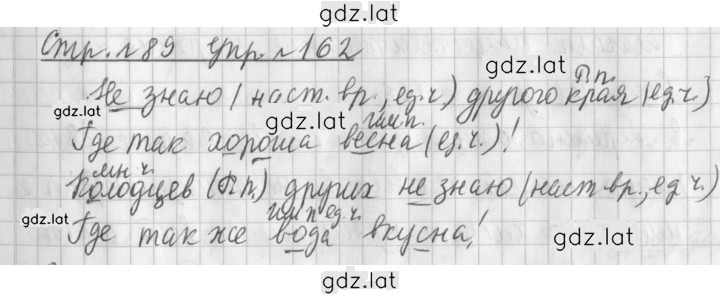 gdz.lat
Стр. № 89 упр. № 162
gdz.lat
Не знаю (наст. вр., ед. ч.) другого края (ед. ч.)
Где так хороша весна (ед. ч.)!
gdz.lat
gdz.lat
мн. ч.
Колодцев (Р.п.) других не знаю (наст. вр., ед. ч.)
gdz.lat
Где так же вода вкусна!
gdz.lat
gdz.lat